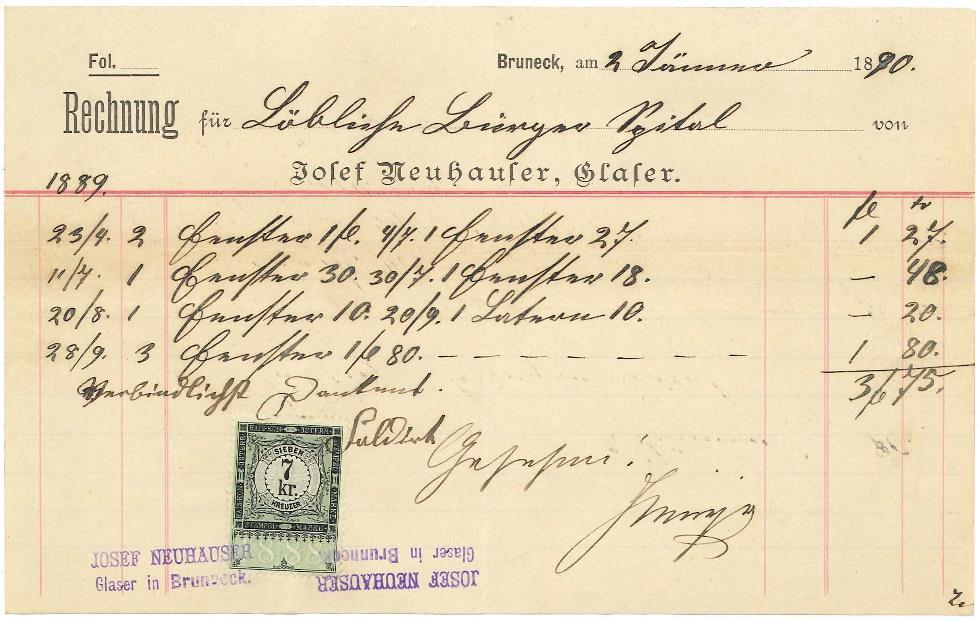 Fol.
Bruneck, am 2 Jänner 1890.
Rechnung für Löbliche Bürger Spital von
Josef Neuhauser, Glaser.
1889.
fl kr
23/4. 2 Fenster 1 fl. 4/7. 1 Fenster 27. 1 27.
11/7. 1 Fenster 30. 30/7. 1 Fenster 18. — 48.
20/8. 1 Fenster 10. 20/9. 1 Latern 10. — 20.
28/9. 3 Fenster 1 fl 80. — — — — — — — 1 80.
3 fl 75.
Verbindlichst Dankent.
Saldirt
KAIS. KÖN. ÖSTERR.
SIEBEN
7
kr.
KREUZER
STEMPEL MARKE
888
JOSEF NEUHAUSER
Glaser in Brunneck.
JOSEF NEUHAUSER
Glaser in Brunneck.